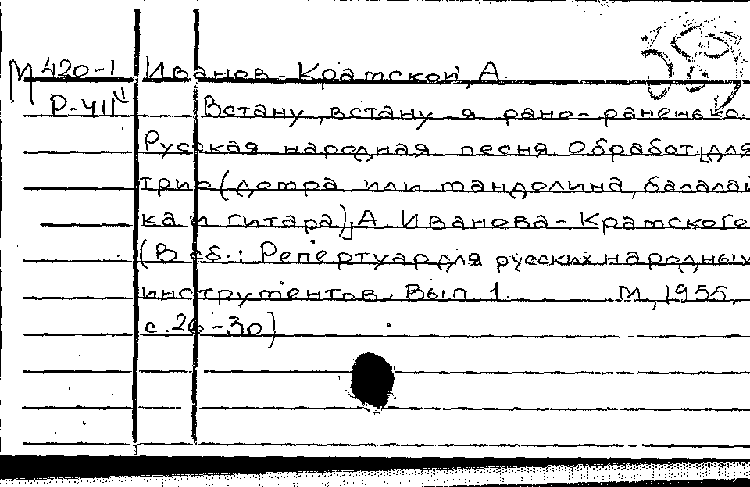 М 420-1 Иванов-Крамской, А.
Р-411 Встану, встану я рано-раненько.
Русская народная песня. Обработ. [для
трио (домра или мандолина, балалай
ка и гитара)] А. Иванова-Крамского
(В сб.: Репертуар для русских народных
инструментов. Вып 1. М, 1955,
с. 26-30)